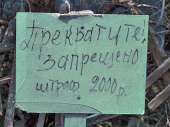 Прекватите!
запрещено
штраф 2000 р.